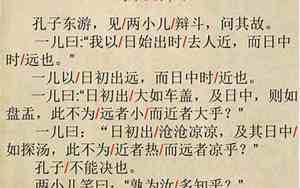 孔子东游，见/两小儿/辩斗，问其故。
一儿曰:“我以/日始出时/去人近，而日中
时/远也。”
一儿以/日初出远，而日中时/近也。
一儿曰:“日初出/大如车盖，及日中，则如
盘盂，此不为/远者小/而近者大乎？”
一儿曰：“日初出/沧沧凉凉，及其日中/
如探汤，此不为/近者热/而远者凉乎？”
孔子/不能决也。
两小儿笑曰:“孰为汝/多知乎？”